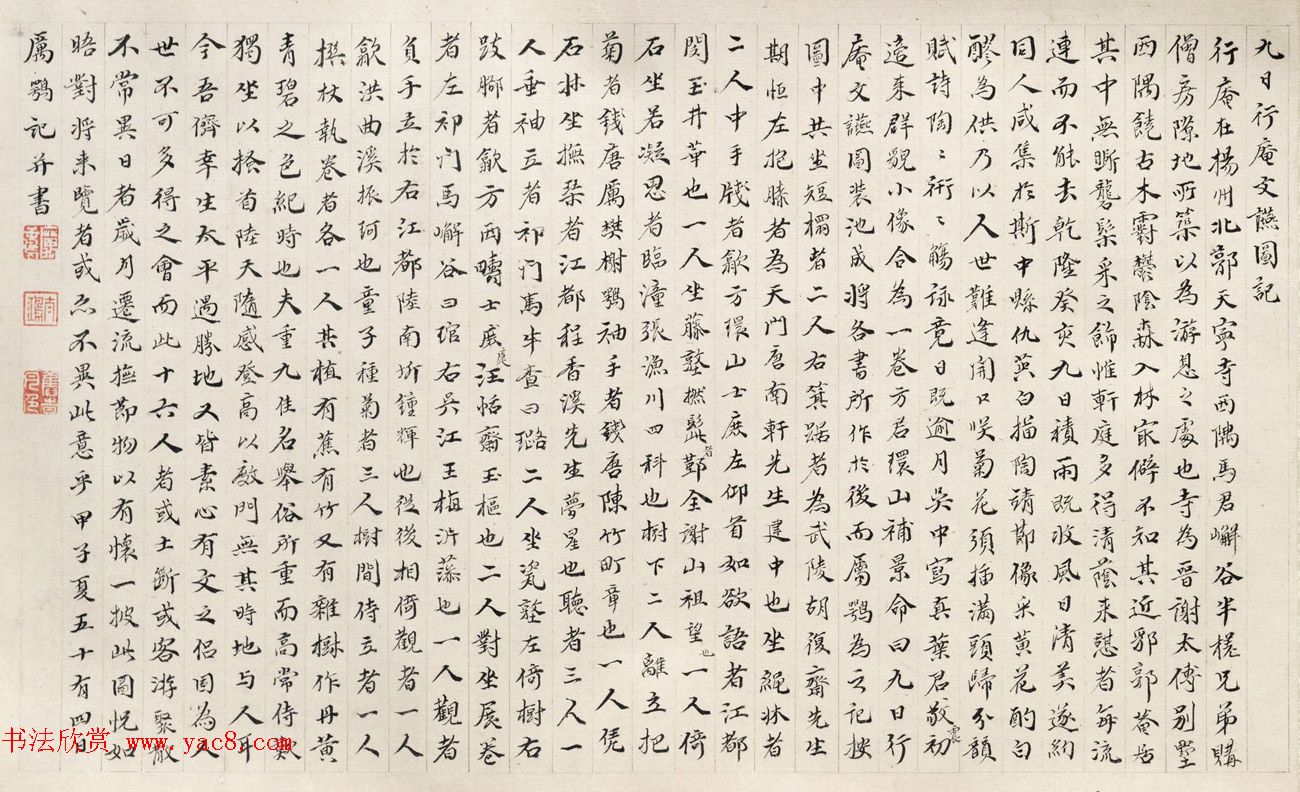 九日行庵文讌圖記
行庵在揚州北郭天寧寺西隅馬君嶰谷半槎兄弟購
僧房隙地所築以為游息之處也寺為晉謝太傅别墅
西隅饒古木霨鬱陰森入林最僻不知其近郛郭菴居
其中無斷礱髹采之飾惟軒庭多得清蔭来憩者每流
連而不能去乾隆癸亥九日積雨既收風日清美遂約
同人咸集於斯中縣仇英白描陶靖節像采黄花酌白
醪為供乃以人世難逢開口咲菊花須插滿頭歸分韻
賦詩陶陶衎衎觴詠竟日既逾月吳中寫真葉君敬初
震
造来群覬小像合為一卷方君環山補景命曰九日行
庵文讌圖装池成将各書所作於後而屬鶚為之記按
圖中共坐短榻者二人右箕踞者為武陵胡復齋先生
期恒左抱膝者為天門唐南軒先生建中也坐繩牀者
二人中手牋者歙方環山士庶左仰首如欲語者江都
閔玉井華也一人坐藤墪撚髭者鄞全謝山祖望也一人倚
石坐若凝思者臨潼張漁川四科也樹下二人離立把
菊者錢唐厲樊榭鶚袖手者錢唐陳竹町章也一人凭
石牀坐撫琹者江都程香溪先生夢星也聽者三人一
人垂袖立者祁門馬半查曰璐二人坐瓷墪左倚樹右
跂腳者歙方西疇士㡽汪恬齋玉樞也二人對坐展卷
庶
者左祁門馬嶰谷曰琯右吳江王梅沜藻也一人觀者
負手立於右江都陸南圻鍾輝也從後相倚觀者一人
歙洪曲溪振珂也童子種菊者三人樹間侍立者一人
撰杖執卷者各一人其植有蕉有竹又有雜樹作丹黄
青碧之色紀時也夫重九佳名舉俗所重而高常侍歎
獨坐以搔首陸天隨感登高以敵門無其時地与人耳
今吾儕幸生太平遇勝地又皆素心有文之侶因為人
世不可多得之會而此十六人者或土斷或客游聚散
不常異日者歲月遷流撫節物以有懷一披此圖怳如
晤對将来覽者或亦不異此意乎甲子夏五十有四日
厲鶚記并書
书法欣赏 www.yac8.com